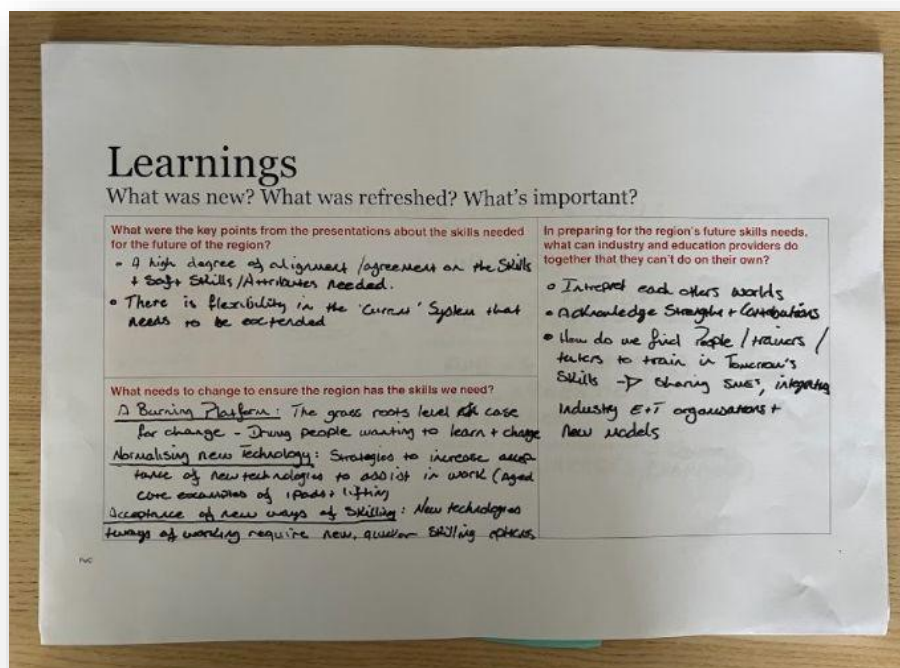 Learnings
What was new? What was refreshed? What's important?
What were the key points from the presentations about the skills needed
for the future of the region?
• A high degree of alignment/agreement on the Skills
+ Soft Skills/Attributes needed.
• There is flexibility in the 'Current' System that
needs to be extended
What needs to change to ensure the region has the skills we need?
A Burning Platform: The grass roots level case
for change - Driving people wanting to learn + change
Normalising new Technology: Strategies to increase accep
tance of new technologies to assist in work (Aged
care examples of ipads + lifting
Acceptance of new ways of Skilling: New technologies
+ ways of working require new, quicker Skilling options
In preparing for the region's future skills needs,
what can industry and education providers do
together that they can't do on their own?
• Interpret each others worlds
• Acknowledge Strengths + Contributions
• How do we find People / trainers /
to train in Tomorrow's
Skills → Sharing integrating
Industry E+T organisations +
New models
PwC